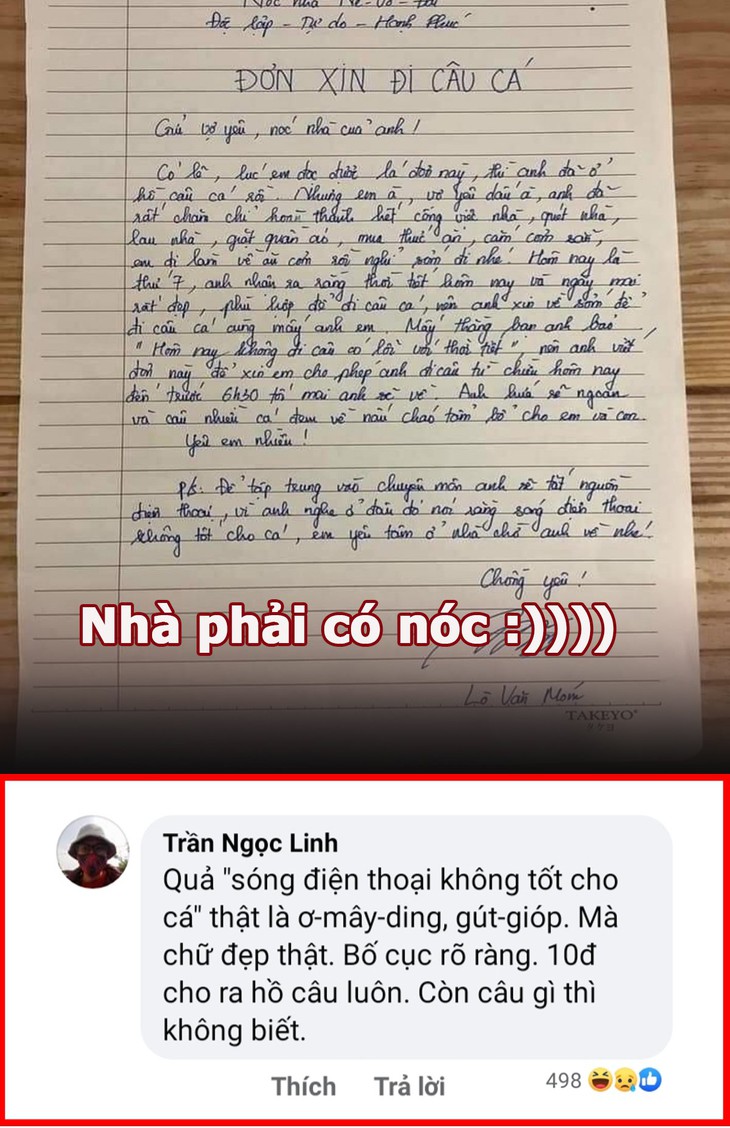 Độc lập - Tự do - Hạnh Phúc
ĐƠN XIN ĐI CÂU CÁ
Gửi vợ yêu, nóc nhà của anh!
Có lẽ, lúc em đọc được lá đơn này, thì anh đã ở
hồ câu cá rồi. Nhưng em à, vợ yêu dấu à, anh đã
rất chăm chỉ hoàn thành hết công việc nhà, quét nhà,
lau nhà, giặt quần áo, mua thức ăn, cắm cơm sẵn,
em đi làm về ăn cơm rồi nghỉ sớm đi nhé! Hôm nay là
thứ 7, anh nhận ra rằng thời tiết hôm nay và ngày mai
rất đẹp, phù hợp để đi câu cá, nên anh xin về sớm để
đi câu cá cùng mấy anh em. Mấy thằng bạn anh bảo
"Hôm nay không đi câu có lỗi với thời tiết" nên anh viết
đơn này để xin em cho phép anh đi câu từ chiều hôm nay
đến trước 6h30 tối mai anh sẽ về. Anh hứa sẽ ngoan
và câu nhiều cá đem về nấu cháo tẩm bổ cho em và con.
Yêu em nhiều!
P/s: Để tập trung vào chuyên môn anh sẽ tắt nguồn
điện thoại, vì anh nghe ở đâu đó nói rằng sóng điện thoại
không tốt cho cá, em yên tâm ở nhà chờ anh về nhé!
Chồng yêu!
Nhà phải có nóc :))))
Lò Văn Mom
TAKEYO
Trần Ngọc Linh
Quả "sóng điện thoại không tốt cho
cá" thật là ơ-mây-ding, gút-gióp. Mà
chữ đẹp thật. Bố cục rõ ràng. 10đ
cho ra hồ câu luôn. Còn câu gì thì
không biết.
Thích Trả lời 498